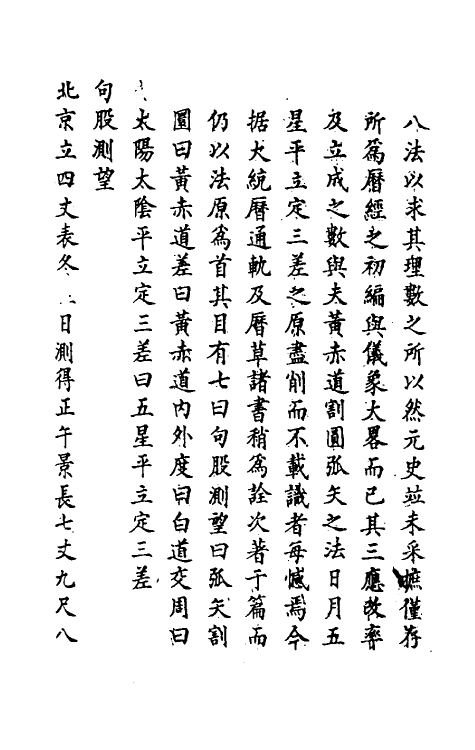 八法以求其理數之所以然元史竝未采摭僅存
所爲曆經之初編與儀象大畧而已其三應改率
及立成之數與夫黃赤道割圓弧矢之法日月五
星平立定三差之原盡削而不載識者每憾焉今
据大統曆通軌及曆草諸書稍爲詮次著于篇而
仍以法原爲首其目有七曰句股測望曰弧矢割
圓曰黃赤道差曰黃赤道內外度曰白道交周曰
太陽太陰平立定三差曰五星平立定三差
句股測望
北京立四丈表冬日測得正午景長七丈九尺八